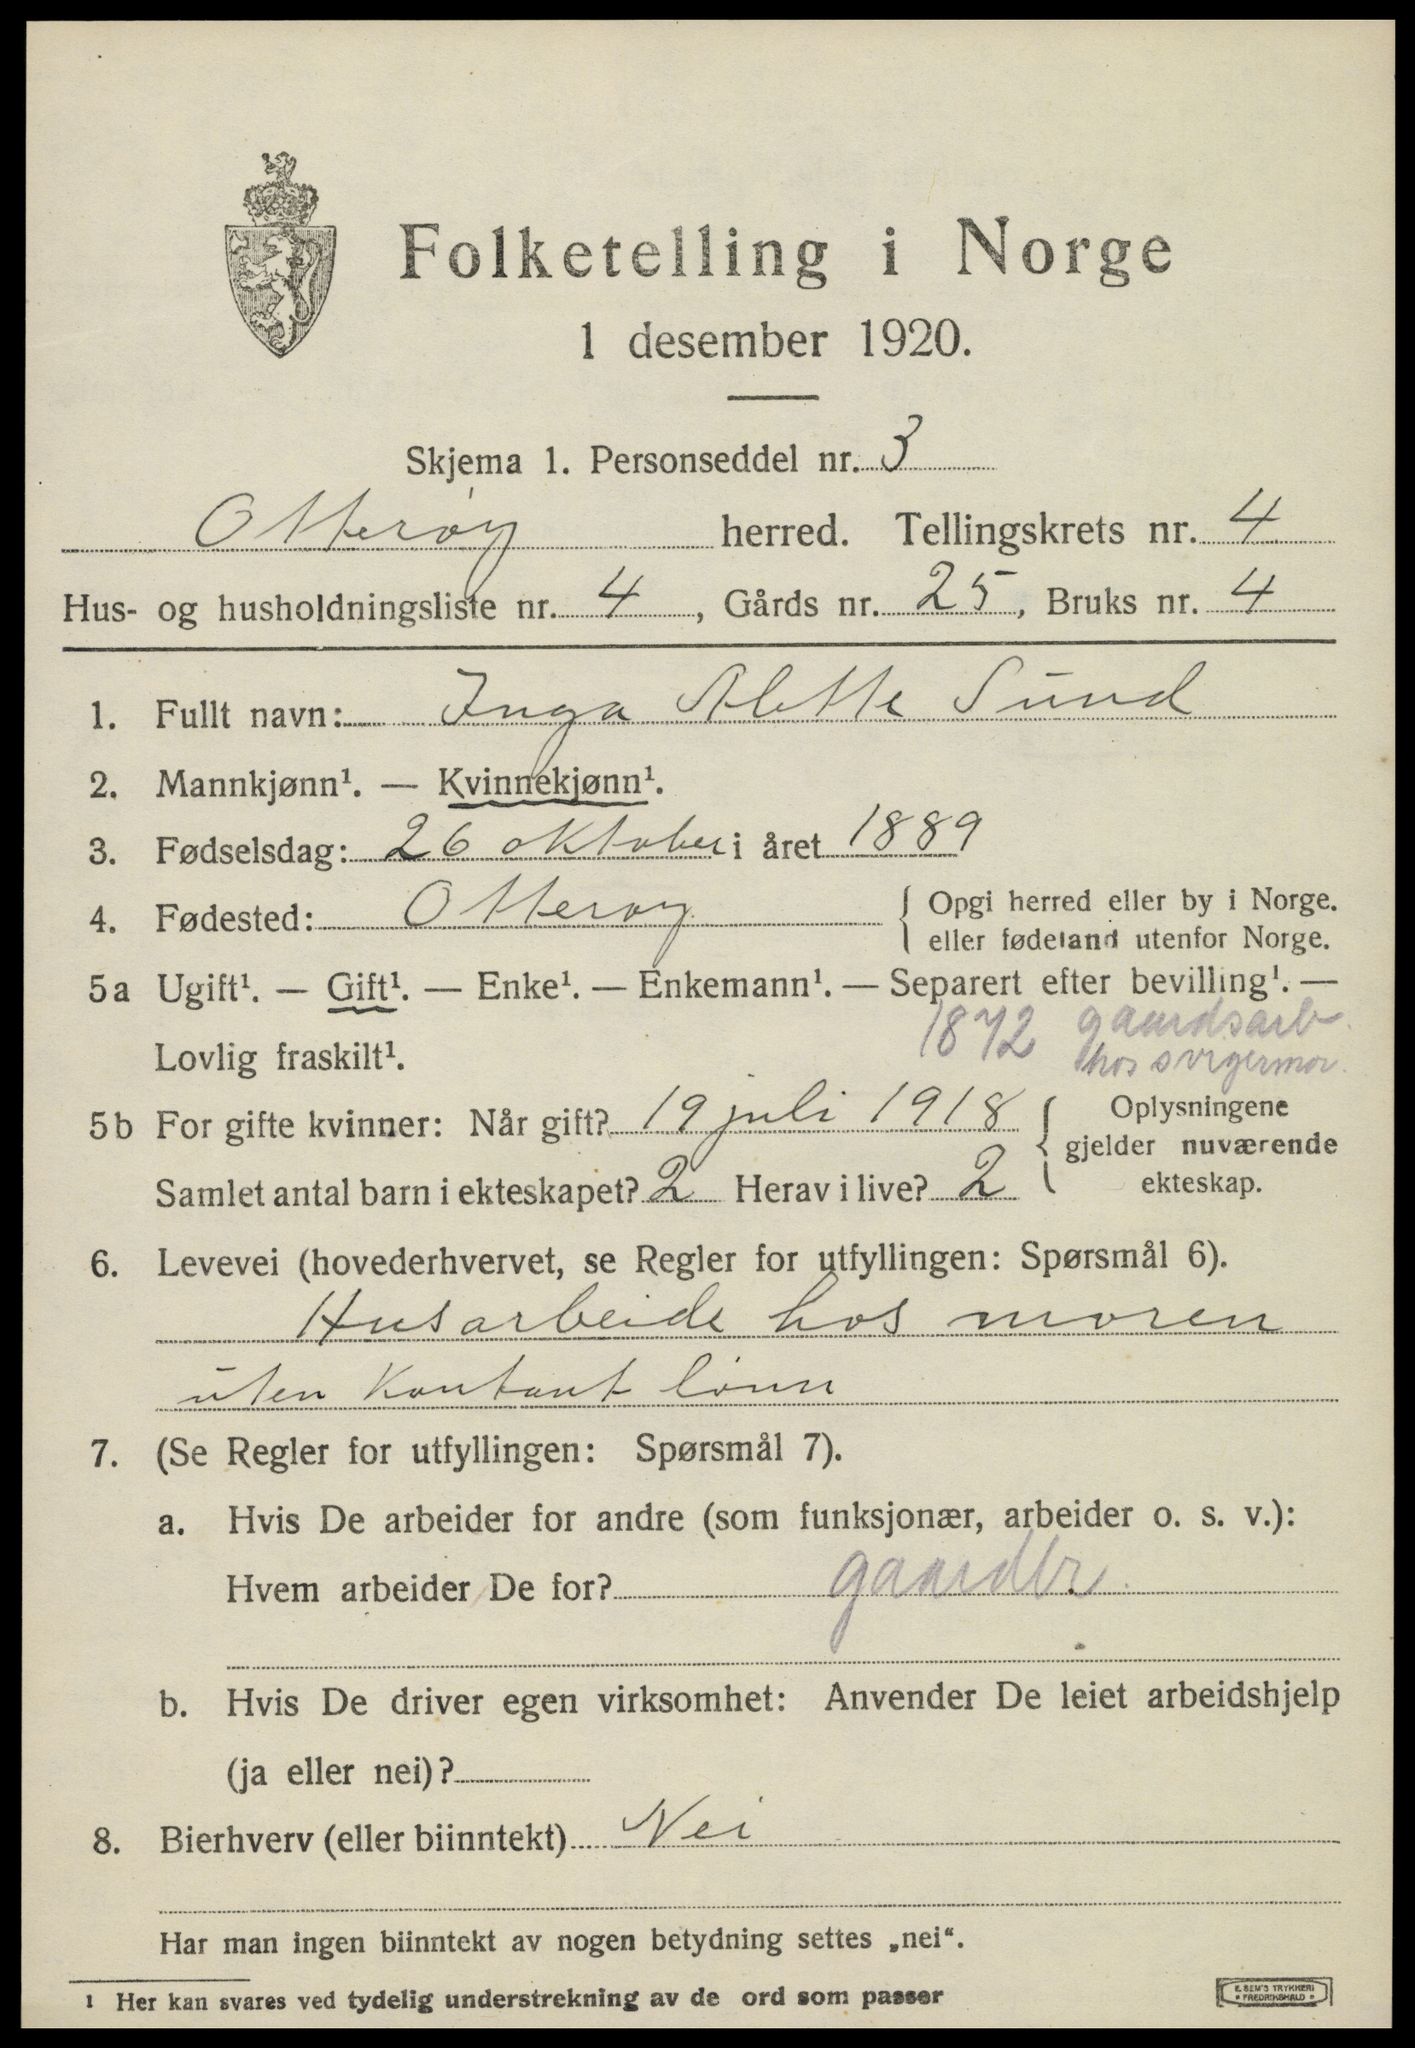 Folketelling i Norge
1 desember 1920.
Skjema 1. Personseddel nr. 3
Otterøy herred. Tellingskrets nr. 4
Hus- og husholdningsliste nr. 4, Gårds nr. 25, Bruks nr. 4
1. Fullt navn: Inga Alette Sund
2. Mannkjønn¹. — Kvinnekjønn¹.
3. Fødselsdag: 26 oktober i året 1889
4. Fødested: Otterøy { Opgi herred eller by i Norge.
eller fødeland utenfor Norge.
5a Ugift¹. — Gift¹. — Enke¹. — Enkemann¹. — Separert efter bevilling¹. —
1872 gaardsarb.
Lovlig fraskilt¹. hos svigermor.
5b For gifte kvinner: Når gift? 19 juli 1918 { Oplysningene
gjelder nuværende
Samlet antal barn i ekteskapet? 2 Herav i live? 2 ekteskap.
6. Levevei (hovederhvervet, se Regler for utfyllingen: Spørsmål 6).
Husarbeide hos moren
uten kontant lønn
7. (Se Regler for utfyllingen: Spørsmål 7).
a. Hvis De arbeider for andre (som funksjonær, arbeider o. s. v.):
Hvem arbeider De for? gaardbr.
b. Hvis De driver egen virksomhet: Anvender De leiet arbeidshjelp
(ja eller nei)?
8. Bierhverv (eller biinntekt) Nei
Har man ingen biinntekt av nogen betydning settes „nei“.
¹ Her kan svares ved tydelig understrekning av de ord som passer
E. SEM'S TRYKKERI
* FREDRIKSHALD *